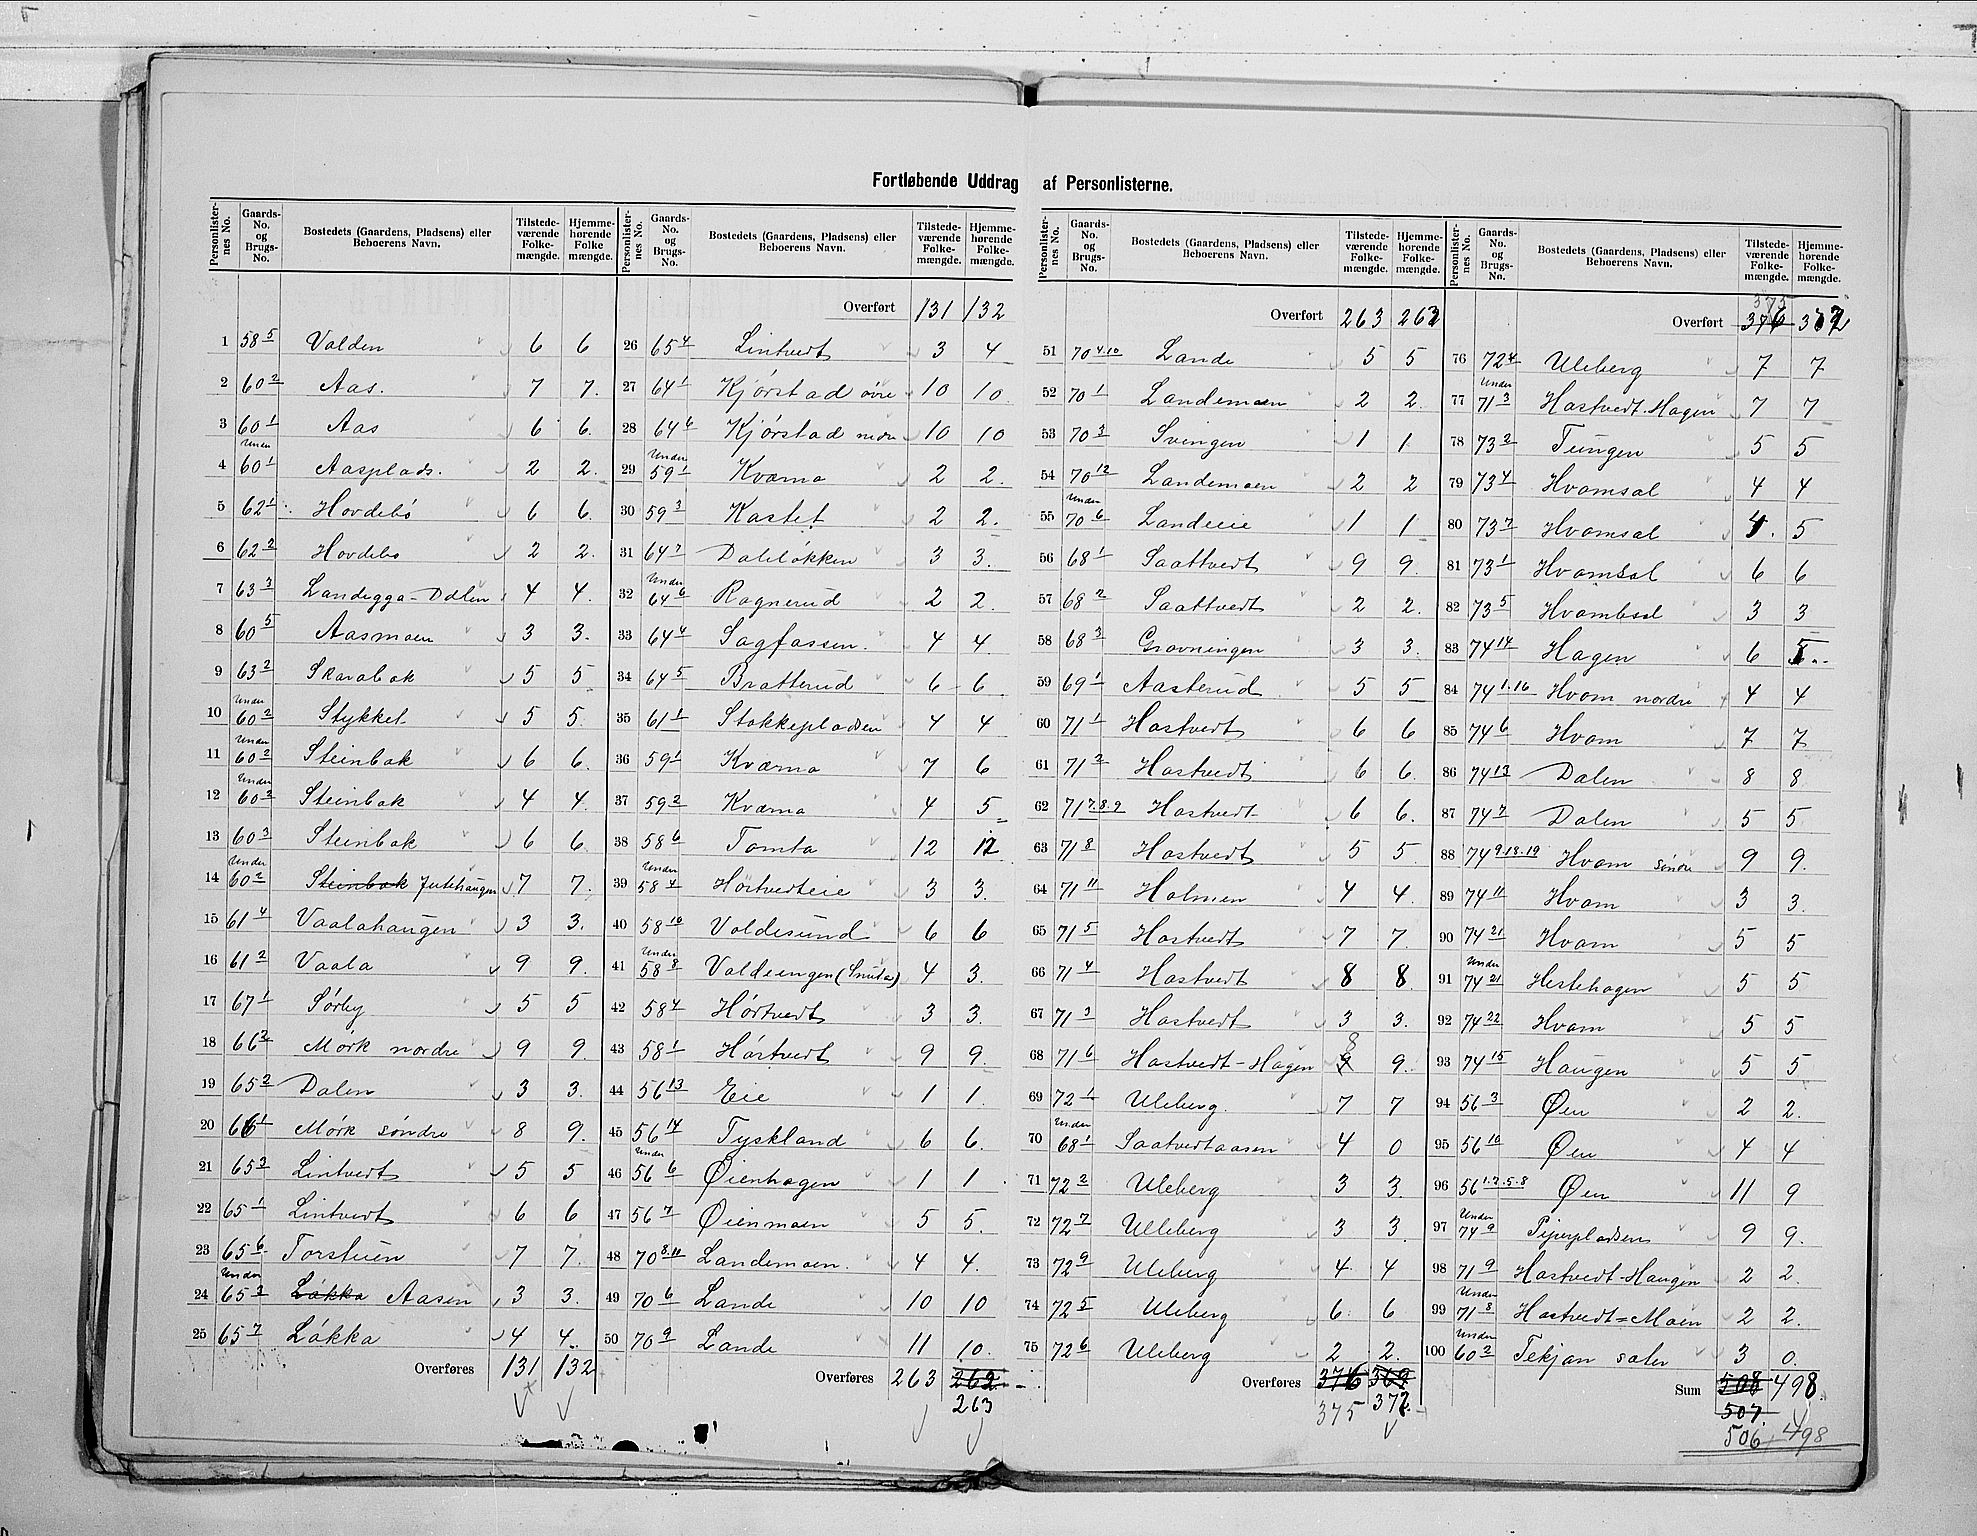 Fortløbende Uddrag af Personlisterne.
Personlister-nes No. Gaards-No. og Brugs-No. Bostedets (Gaardens, Pladsens) eller Beboerens Navn. Tilstede-værende Folke-mængde. Hjemme-hørende Folke-mængde.
1 58 5 Valden 6 6
2 60 2 Aas. 7 7.
3 60 1 Aas 6 6.
4 Under 60 1 Aasplads. 2 2.
5 62 1 Hovdebø 6 6.
6 62 2 Hovdebø 2 2.
7 63 3 Landegga-Dalen 4 4.
8 60 5 Aasmoen 3 3.
9 63 2 Skarabak 5 5
10 Under 60 2 Stykket 5 5.
11 Under 60 2 Steinbak 6 6.
12 Under 60 2 Steinbak 4 4.
13 60 3 Steinbak 6 6.
14 Under 60 2 Steinbak Jutehaugen 7 7.
15 61 4 Vaalahaugen 3 3.
16 61 2 Vaala 9 9.
17 67 1 Sørby 5 5
18 66 2 Mørk nordre 9 9
19 65 2 Dalen 3 3.
20 66 1 Mørk søndre 8 9.
21 65 3 Lintvedt 5 5
22 65 1 Lintvedt 6 6
23 65 6 Torstuen 7 7.
24 Under 65 3 Løkka Aasen 3 3.
25 65 7 Løkka 4 4.
Overføres 131 132
Personlister-nes No. Gaards-No. og Brugs-No. Bostedets (Gaardens, Pladsens) eller Beboerens Navn. Tilstede-værende Folke-mængde. Hjemme-hørende Folke-mængde.
Overført 131 132
26 65 4 Lintvedt 3 4
27 64 1 Kjørstad øvre 10 10
28 64 6 Kjørstad nedre 10 10
29 Under 59 1 Kværna 2 2.
30 59 3 Kastet 2 2.
31 64 7 Daleløkken 3 3.
32 Under 64 6 Ragnerud 2 2.
33 64 4 Sagfossen. 4 4
34 64 5 Bratterud 6 6
35 61 1 Stokkepladsen 4 4
36 59 1 Kværna 7 6
37 59 2 Kværna 4 5
38 58 6 Tomta 12 12
39 Under 58 4 Hørtvedteie 3 3.
40 58 10 Valdesund 6 6
41 Under 58 8 Valdeengen (Snuta) 4 3.
42 58 4 Hørtvedt 3 3.
43 58 1 Hørtvedt 9 9.
44 56 13 Eie 1 1.
45 56 14 Tyskland 6 6.
46 Under 56 6 Øienhagen 1 1
47 56 7 Øienmoen 5 5.
48 70 8.11 Landemoen. 4 4.
49 70 6 Lande 10 10
50 70 9 Lande 11 10.
Overføres 263 262
263
Personlister-nes No. Gaards-No. og Brugs-No. Bostedets (Gaardens, Pladsens) eller Beboerens Navn. Tilstede-værende Folke-mængde. Hjemme-hørende Folke-mængde.
Overført 263 263
51 70 4.10 Lande 5 5
52 70 1 Landemoen 2 2.
53 70 3 Svingen 1 1
54 70 12 Landemoen 2 2
55 Under 70 6 Landeeie 1 1.
56 68 1 Saattvedt 9 9.
57 68 2 Saattvedt 2 2.
58 68 3 Gravningen 3 3.
59 69 1 Aasterud 5 5
60 71 1 Hastvedt 6 6
61 71 2 Hastvedt 6 6.
62 71 7.8.9 Hastvedt 6 6.
63 71 8 Hastvedt 5 5.
64 71 11 Holmen 4 4.
65 71 5 Hastvedt 7 7.
66 71 4 Hastvedt 8 8
67 71 3 Hastvedt 3 3.
68 71 6 Hastvedt-Hagen 9 8 9.
69 72 1 Uleberg. 7 7
70 Under 68 1 Saatvedtaasen 4 0
71 72 2 Uleberg 3 3.
72 72 7 Uleberg 3 3.
73 72 9 Uleberg 4. 4
74 72 5 Uleberg 6. 6
75 72 6 Uleberg 2 2.
Overføres 376 369
375 372
Personlister-nes No. Gaards-No. og Brugs-No. Bostedets (Gaardens, Pladsens) eller Beboerens Navn. Tilstede-værende Folke-mængde. Hjemme-hørende Folke-mængde.
375
Overført 376 372
76 72 4 Uleberg 7 7
77 Under 71 3 Hastvedt-Hagen 7 7
78 73 2 Tungen 5 5
79 73 4 Hvamsal 4 4
80 73 7 Hvamsal 4. 5
81 73 1 Hvamsal 6 6
82 73 5 Hvambsal 3 3
83 74 14 Hagen 6 5
84 74 1.16 Hvam nordre 4 4
85 74 6 Hvam 7 7
86 74 13 Dalen 8 8
87 74 7 Dalen 5 5
88 74 9.18.19 Hvam søndre 9 9.
89 74 11 Hvam 3 3.
90 74 21 Hvam 5 5
91 Under 74 21 Hestehagen 5 5
92 74 22 Hvam 5 5
93 74 15 Haugen 5 5
94 56 3 Øen 2 2.
95 56 10 Øen 4 4
96 56 1.2.5.8 Øen 11 9
97 Under 74 9 Piperpladsen 9 9.
98 71 9 Hastvedt-Haugen 2 2.
99 Under 71 8 Hastvedt=Moen 2 2.
100 Under 60 2 Tekjan sæter 3 0.
Sum 508 498
507
506 498